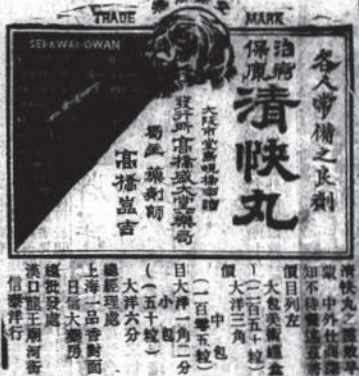 TRADE MARK
SEI-KWAI-GWAN
各人常備之良劑
治病
保康
清快丸
大阪市
發行所 高橋盛大堂藥局
藥劑師
高橋嘉吉
清快丸之
蒙 中外仕商
知不待
價目列左
大包美術鐵盒
(二百五十粒)
價 大洋三角
中包
(一百零五粒)
目 大洋一角二分
小包
(五十粒)
大洋六分
總經理處
上海一品香對面
日信大藥房
總批發處
漢口龍王廟河街
信泰洋行